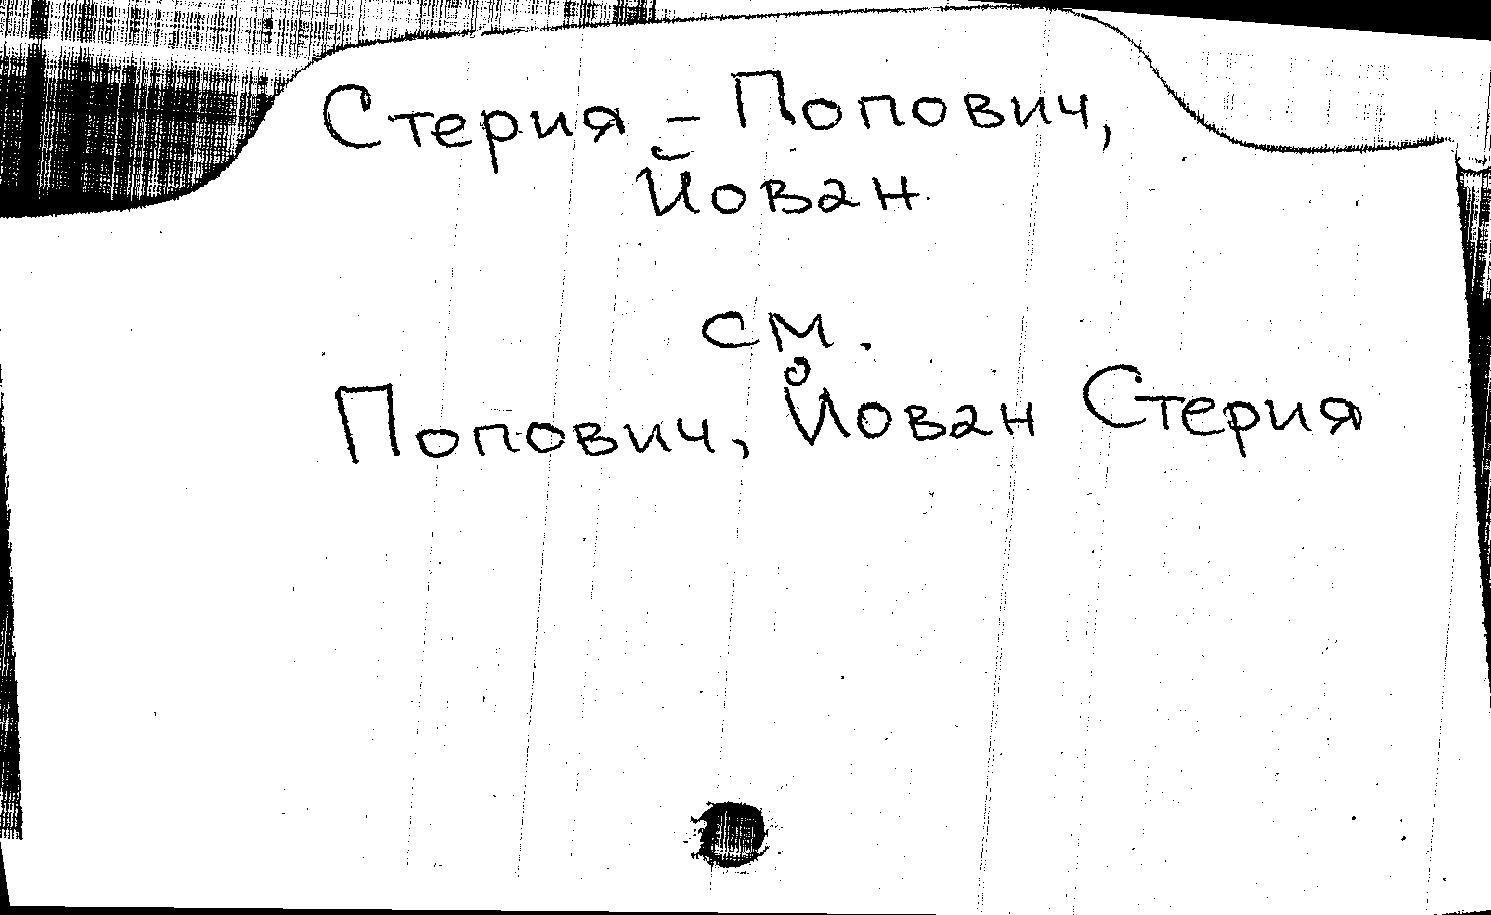 Стерия - Попович,
Йован
см.
Попович, Йован Стерия